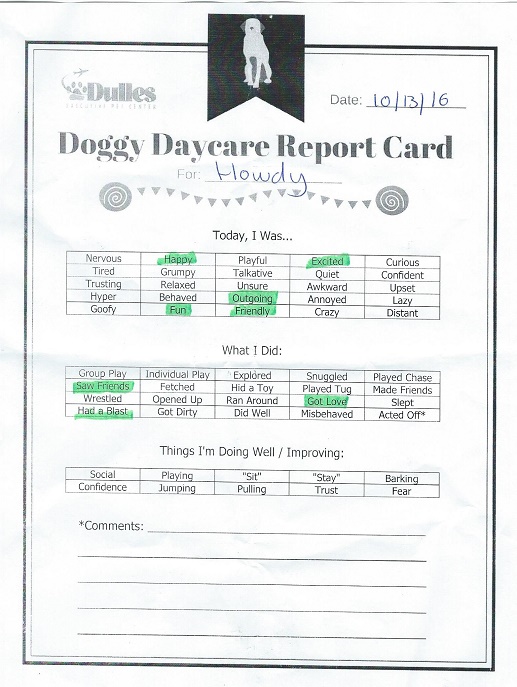 Dulles
EXECUTIVE PET CENTER
Date: 10/13/16
Doggy Daycare Report Card
For: Howdy
Today, I Was...
Nervous Happy Playful Excited Curious
Tired Grumpy Talkative Quiet Confident
Trusting Relaxed Unsure Awkward Upset
Hyper Behaved Outgoing Annoyed Lazy
Goofy Fun Friendly Crazy Distant
What I Did:
Group Play Individual Play Explored Snuggled Played Chase
Saw Friends Fetched Hid a Toy Played Tug Made Friends
Wrestled Opened Up Ran Around Got Love Slept
Had a Blast Got Dirty Did Well Misbehaved Acted Off*
Things I'm Doing Well / Improving:
Social Playing "Sit" "Stay" Barking
Confidence Jumping Pulling Trust Fear
*Comments: